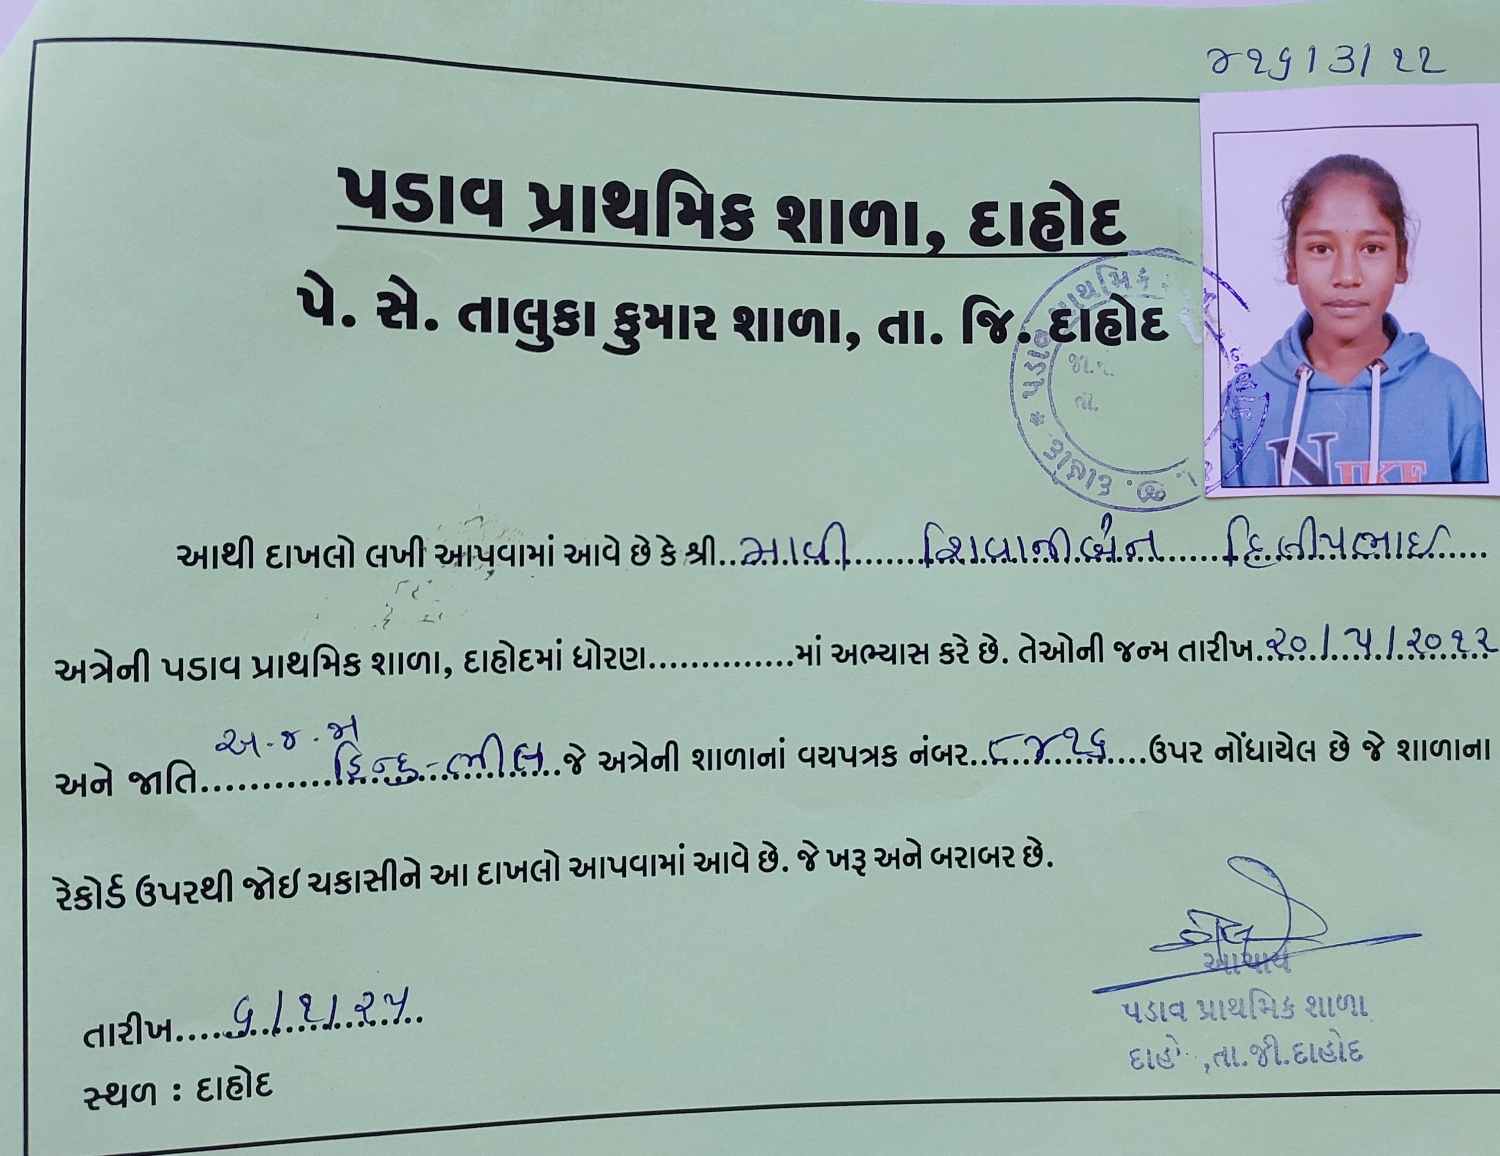 ૪૨૬/૩/૨૨
પડાવ પ્રાથમિક શાળા, દાહોદ
પે. સે. તાલુકા કુમાર શાળા, તા. જિ. દાહોદ
આથી દાખલો લખી આપવામાં આવે છે કે શ્રી..માવી......શિવાનીબેન......દિલીપભાઇ....
અત્રેની પડાવ પ્રાથમિક શાળા, દાહોદમાં ધોરણ..............માં અભ્યાસ કરે છે. તેઓની જન્મ તારીખ..૨૦/૫/૨૦૧૨
અ.જ.જા
અને જાતિ............હિન્દુ-ભીલ..જે અત્રેની શાળાનાં વયપત્રક નંબર..૮૪૨૬....ઉપર નોંધાયેલ છે જે શાળાના
રેકોર્ડ ઉપરથી જોઈ ચકાસીને આ દાખલો આપવામાં આવે છે. જે ખરૂ અને બરાબર છે.
તારીખ....૬/૧/૨૫
સ્થળ : દાહોદ
આચાર્ય
પડાવ પ્રાથમિક શાળા
તા.જી.દાહોદ
NIKE